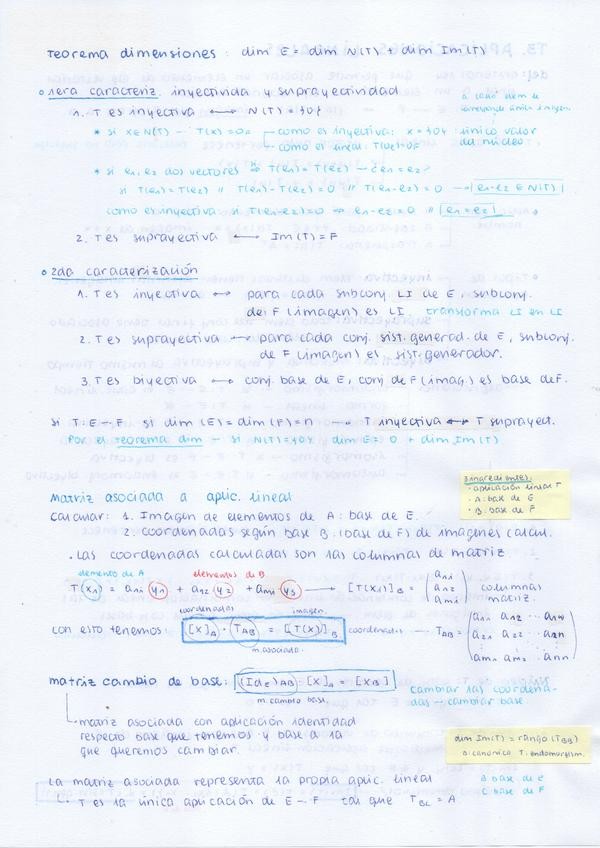 Teorema dimensiones: dim E = dim N(T) + dim Im(T)
1era caracteriz. inyectividad y suprayectividad
a cada elem le corresponde única imagen
1. T es inyectiva ⟷ N(T) = {0}
* si x∈N(T) → T(x)=0F
como es inyectiva: x = {0} único valor del núcleo
como es lineal: T(0E)=0F
* si e1, e2 dos vectores ⇒ T(e1) = T(e2) → ¿e1 = e2?
si T(e1)=T(e2) // T(e1)-T(e2)=0 // T(e1-e2)=0 → e1-e2 ∈ N(T)
como es inyectiva si T(e1-e2)=0 ⇒ e1-e2=0 // e1=e2
2. T es suprayectiva ⟷ Im(T)=F
2da caracterización
1. T es inyectiva ⟷ para cada subconj. LI de E, subconj.
de F (imagen) es LI transforma LI en LI
2. T es suprayectiva ⟷ para cada conj. sist. generad. de E, subconj.
de F (imagen) es sist. generador.
3. T es biyectiva ⟷ conj. base de E, conj de F (imag.) es base de F.
si T: E→F si dim(E)=dim(F)=n → T inyectiva ⟷ T suprayect.
Por el teorema dim → si N(T)={0}, dim E = 0 + dim Im(T)
3 ingredientes:
· aplicación lineal T
· A: base de E
· B: base de F
Matriz asociada a aplic. lineal
Calcular: 1. Imagen de elementos de A: base de E.
2. coordenadas según base B: (base de F) de imagenes calcul.
· Las coordenadas calculadas son las columnas de matriz.
elemento de A elementos de B
T(x1) = a1i y1 + a2i y2 + ami y3 → [T(xi)]B = (a1i a2i ami) columnas matriz.
coordenadas imagen.
con esto tenemos: [X]A · TAB = [T(x)]B coordenadas → TAB = (a11 a12 ... a1n
a21 a22 ... a2n
am1 am2 ... amn)
m. asociada.
matriz cambio de base: (IdE)AB · [X]A = [XB]
m. cambio base
cambiar las coordenadas → cambiar base.
matriz asociada con aplicación identidad
respecto base que tenemos y base a la
que queremos cambiar.
dim Im(T) = rango (TBB)
B: canónica T: endomorfism.
La matriz asociada representa la propia aplic. lineal
B base de E
C base de F
T es la única aplicación de E→F tal que TBC = A